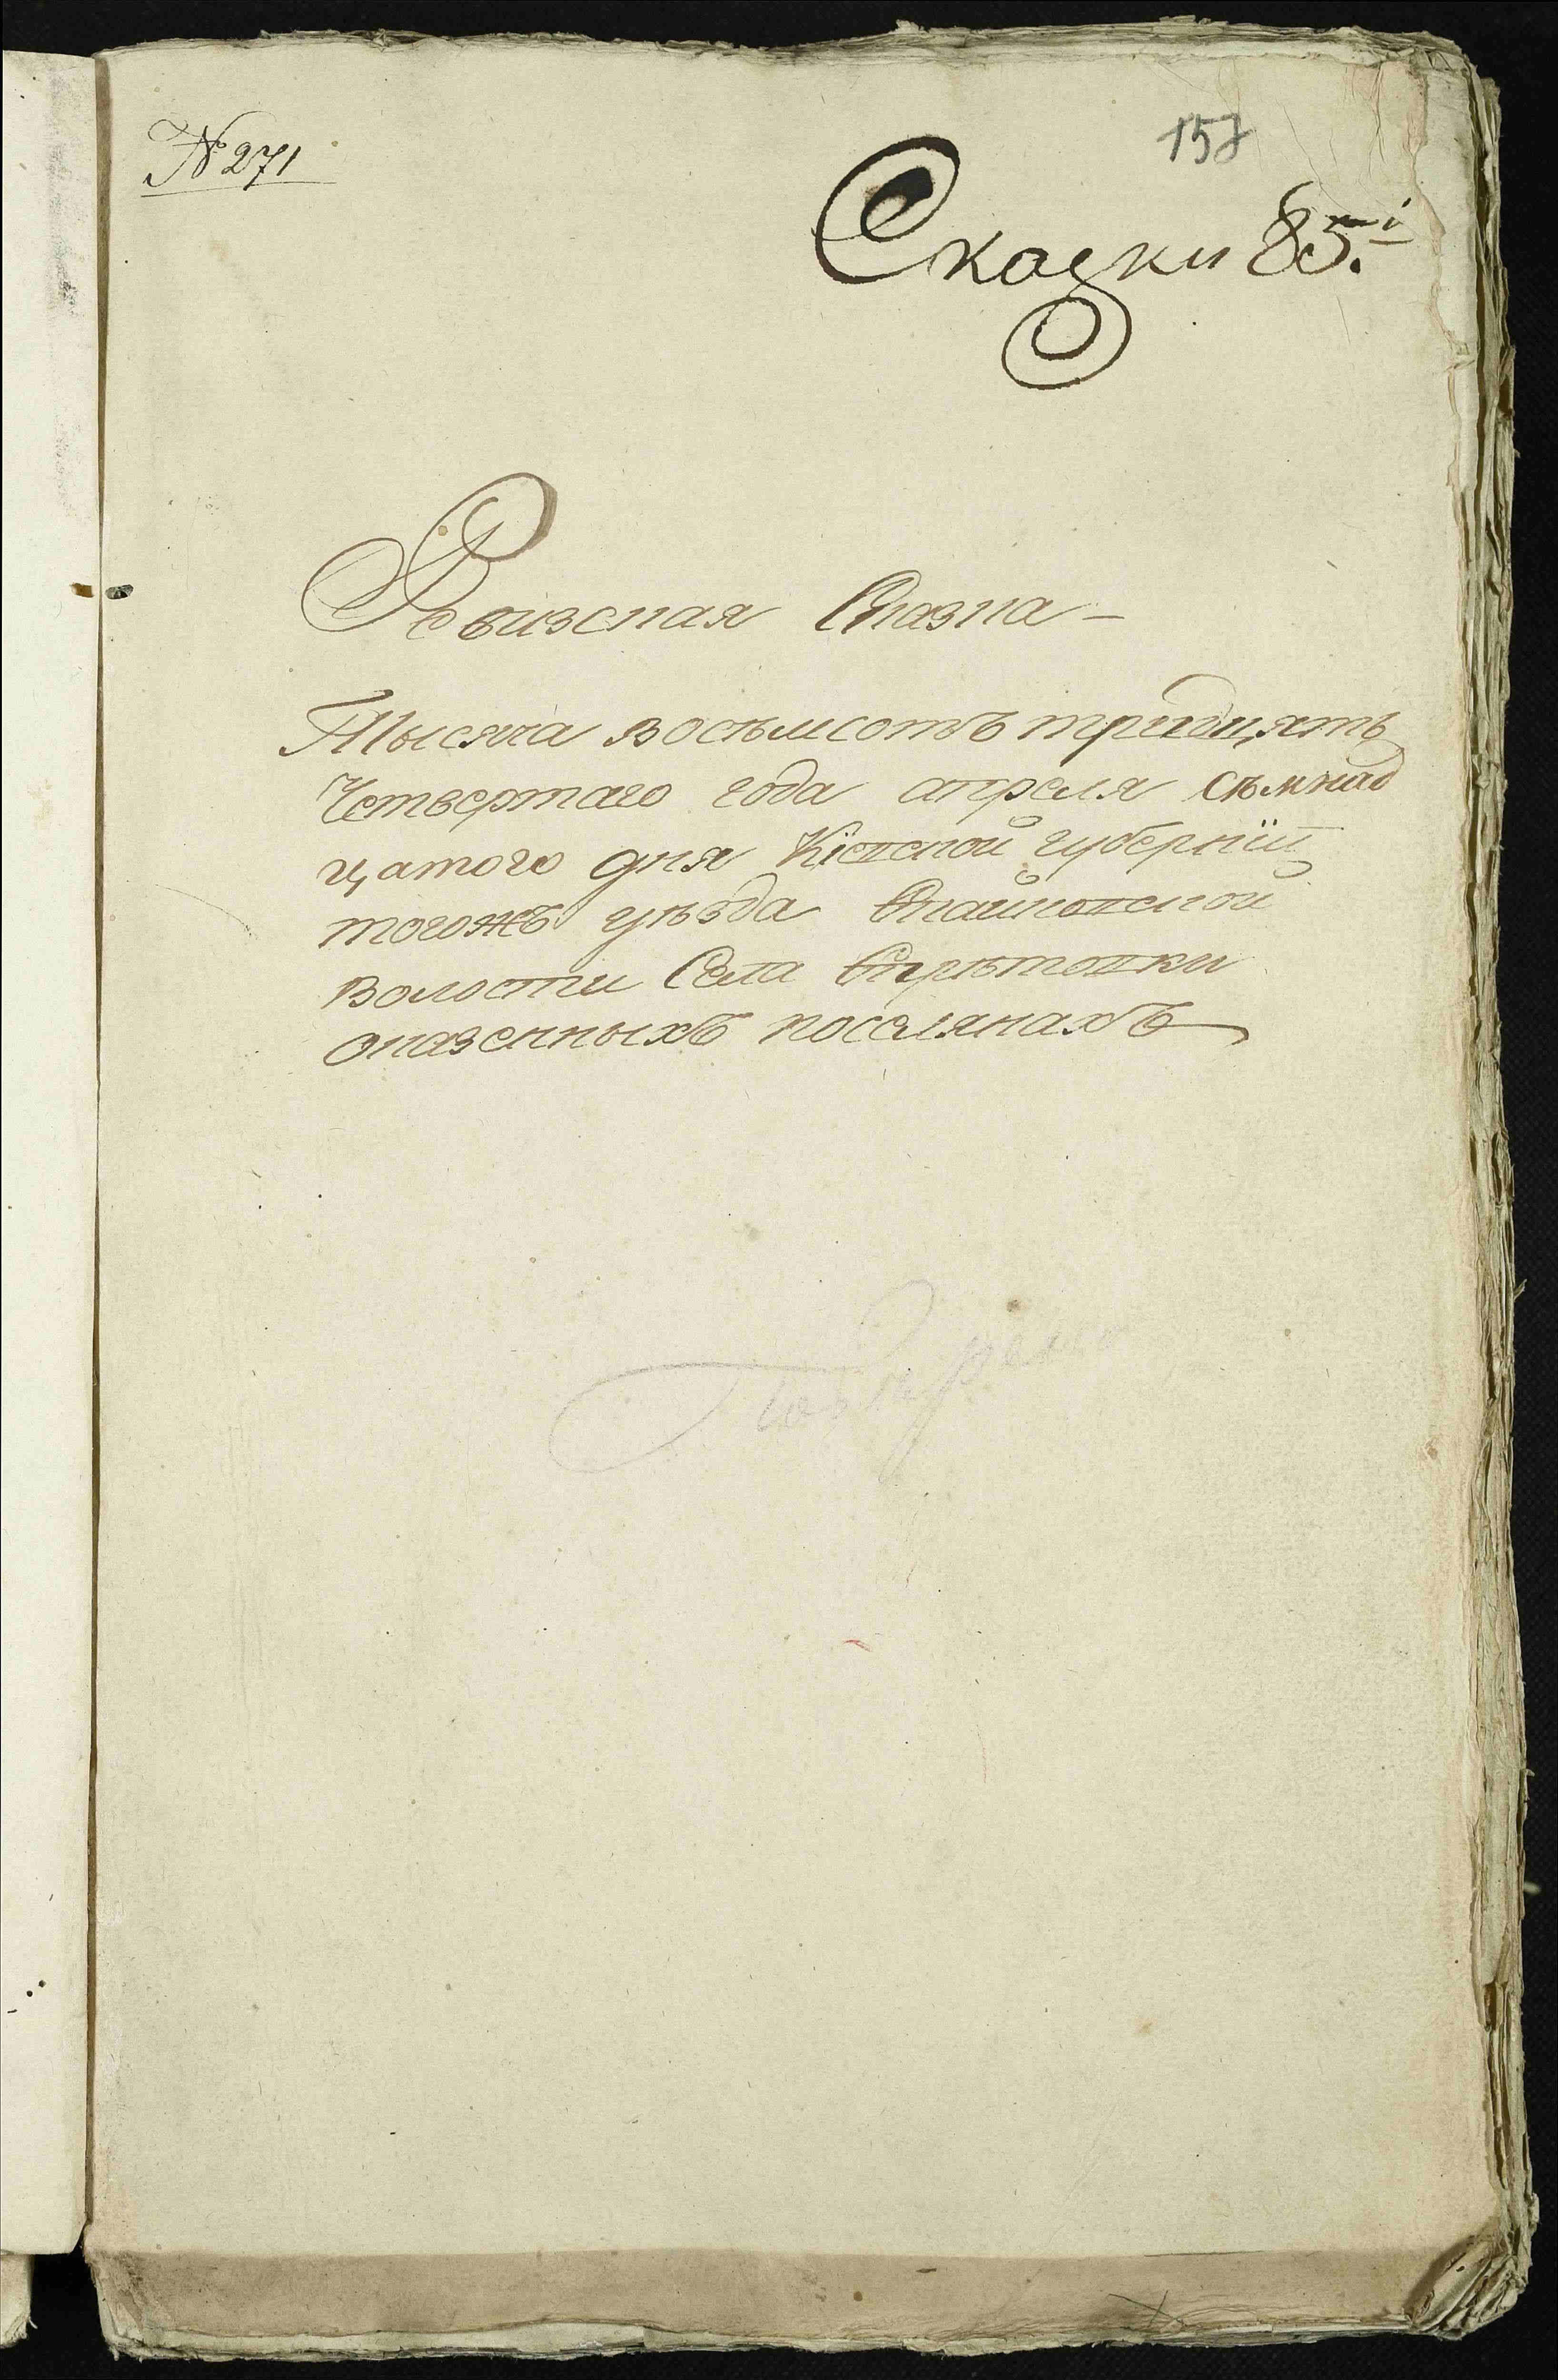 № 271
157
Сказки 85.й
Ревизская Сказка –
Тысяча восемьсотъ тридцять
Четвертаго года апреля съмнад
цатого дня Кіевской губерніи
тогожъ уѣзда Стайковской
волости Села Стрѣтовки
оказенныхъ поселянахъ